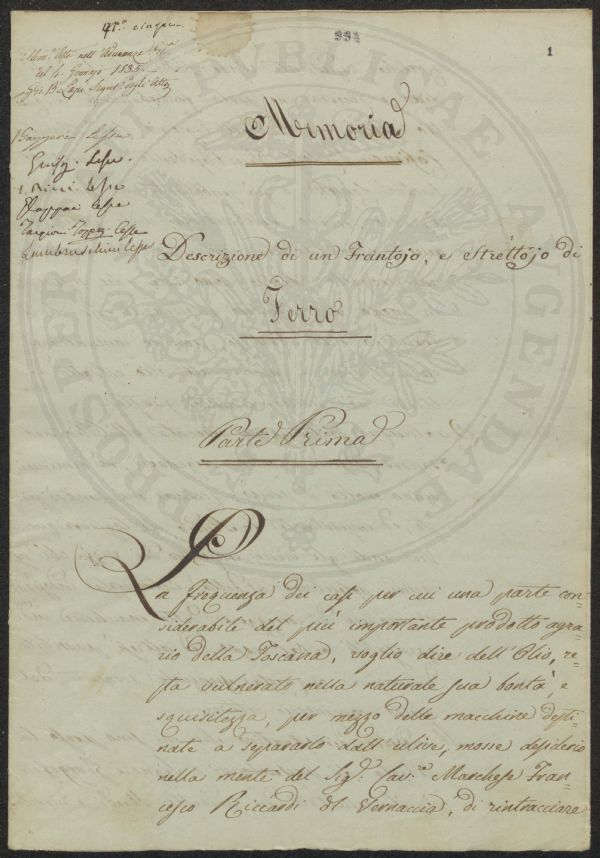 N.º cinque
994
1
Mem.ª letta nell'Adunanza
del 4. Gennajo 1835.
Lapi Segret.º degli Atti
Gazzeri Lesse
Lesse
Ricci Lesse
Lesse
Targioni Tozzetti Lesse
Lambruschini Lesse
Memoria
Descrizione di un Frantojo, e Strettojo di
Ferro
Parte Prima
La frequenza dei casi per cui una parte con-
siderabile del più importante prodotto agra-
rio della Toscana, voglio dire dell'Olio, re-
sta vulnerato nella naturale sua bontà, e
squisitezza, per mezzo delle macchine desti-
nate a separarlo dall'ulive, mosse desiderio
nella mente del Sig.r Cav.re Marchese Fran-
cesco Riccardi del Vernaccia, di rintracciare
PROSPERITATI PUBLICAE AUGENDAE